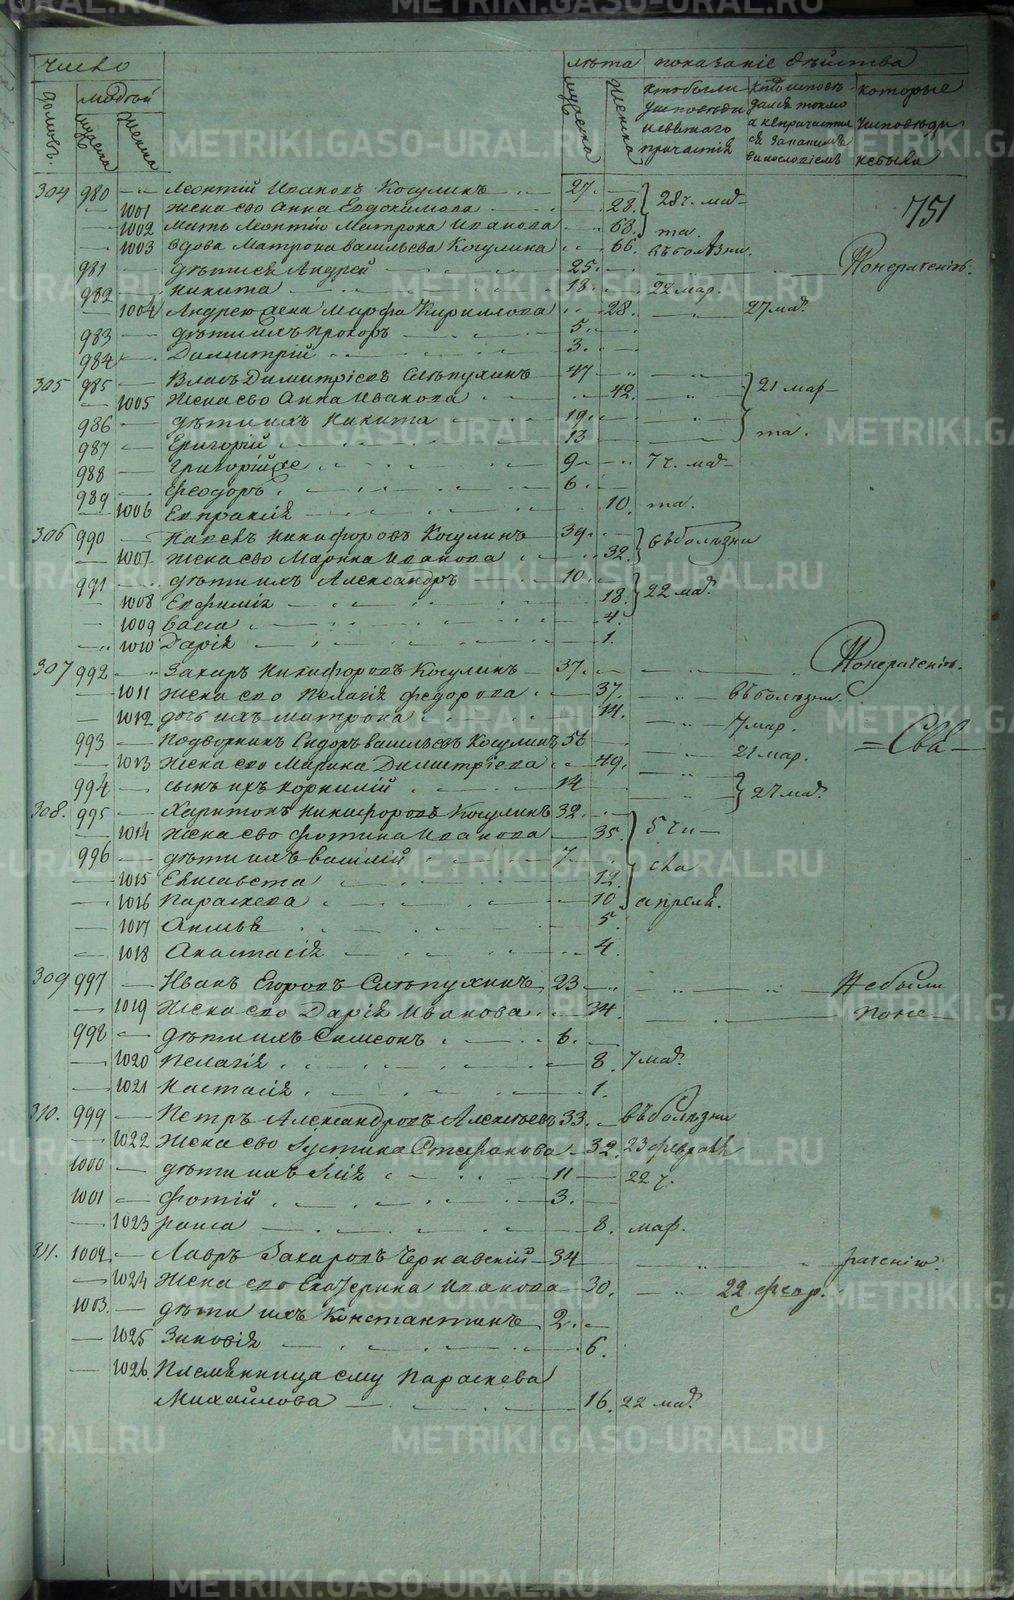 число лѣта показаніе дѣйства
домовъ людей мужска женска мужска женска
кто были у исповѣди и святаго причастія
которые
у исповѣди не были
751
304 980 Леонтій Ивановъ Косулинъ 27
1001 Жена его Анна Евдокимова 28 28 ч. мар
1002 Мать Леонтію Матрона Иванова 68 та.
1003 вдова Матрона васильева Косулина 66 въ болѣзни.
981 дѣти ея Андрей 25 По нераченію.
982 никита 18 22 мар.
1004 Андрею жена Марфа Кириллова 28 27 мар.
983 дѣти ихъ прохоръ 5
984 Димитрій 3
305 985 Власъ Димитріевъ Слѣпухинъ 47
1005 Жена его Анна Иванова 42 21 мар
986 дѣти ихъ Никита 19 та.
987 Григорій 13
988 Григорій же 9 7 ч. мар
989 Феодоръ 6
1006 Евпраксія 10 та.
306 990 Никифоровъ Косулинъ 39
1007 Жена его Марина Иванова 32 въ болѣзни
991 дѣти ихъ Александръ 10
1008 Евфимія 13 22 мар.
1009 васса 4
1010 Дарія 1
307 992 Захаръ Никифоровъ Косулинъ 37 По нераченію.
1011 Жена его Пелагія Федорова 37 въ болѣзни
1012 дочь ихъ матрона 14 7 мар.
993 Подворникъ Сидоръ васильевъ Косулинъ 56 21 мар.
1013 Жена его Марина Димитріева 49
994 сынъ ихъ корнилій 14 27 мар.
308. 995 Харитонъ Никифоровъ Косулинъ 32
1014 Жена его Фотина Иванова 35 5 чи
996 дѣти ихъ василій 7 сла
1015 Елисавета 12
1016 Параскева 10 апрѣля.
1017 5
1018 Анастасія 4
309 997 Иванъ Егоровъ Слѣпухинъ 23 Не были
1019 Жена его Дарія Иванова 34
998 дѣти ихъ Симеонъ 6
1020 Пелагія 8 7 мар.
1021 Настасія 1
310. 999 Петръ Александровъ Алексѣевъ 33 въ болѣзни
1022 Жена его Іустина Стефанова 32 23 февраля
1000 дѣти ихъ Илія 11 22 ч.
1001 Фотій 3
1023 раиса 8 мар.
311. 1002 Лавръ Захаровъ Чернавскій 34 раченію.
1024 Жена его Екатерина Иванова 30 22 февр.
1003 дѣти ихъ Константинъ 2
1025 Зиновія 6
1026 Племянница ему Параскева
Михайлова 16 22 мар.
METRIKI.GASO-URAL.RU